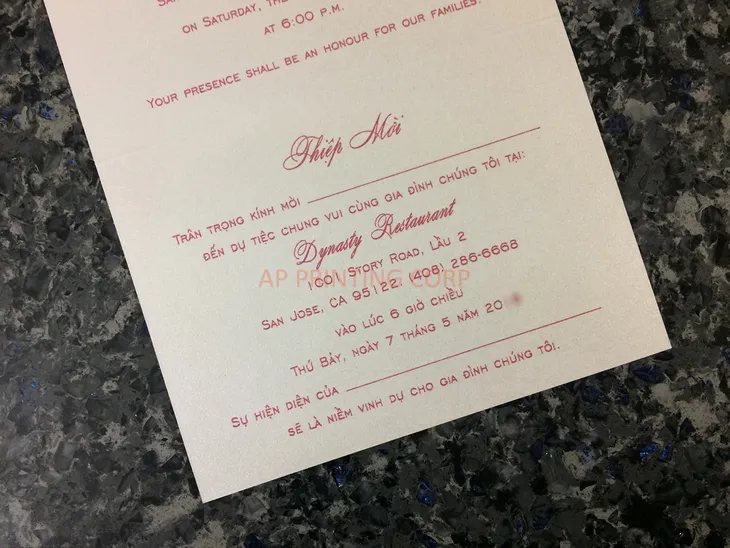 ON SATURDAY, THE
AT 6:00 P.M.
YOUR PRESENCE SHALL BE AN HONOUR FOR OUR FAMILIES.
Thiệp Mời
TRÂN TRỌNG KÍNH MỜI
ĐẾN DỰ TIỆC CHUNG VUI CÙNG GIA ĐÌNH CHÚNG TÔI TẠI:
Dynasty Restaurant
1001 STORY ROAD, LẦU 2
AP PRINTING CORP
SAN JOSE, CA 95122 (408) 286-6668
VÀO LÚC 6 GIỜ CHIỀU
THỨ BẢY, NGÀY 7 THÁNG 5 NĂM 20
SỰ HIỆN DIỆN CỦA
SẼ LÀ NIỀM VINH DỰ CHO GIA ĐÌNH CHÚNG TÔI.